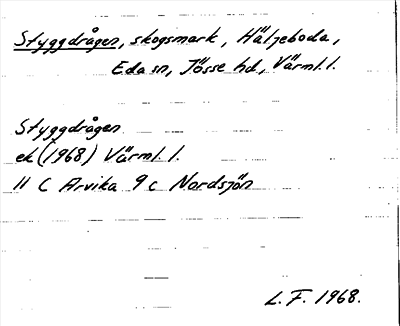 Styggdrågen, skogsmark, Häljeboda,
Eda sn, Jösse hd, Värml. l.
Styggdrågen
ek (1968) Värml. l.
11 C Arvika 9 c Nordsjön
L. F. 1968.